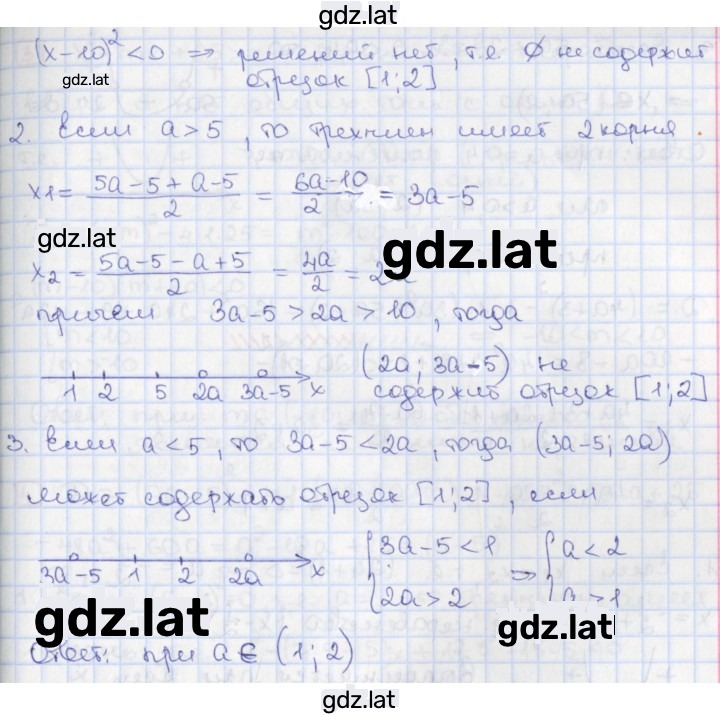 gdz.lat
(x-10)² < 0 ⇒ решений нет, т.е. ∅ не содержит
gdz.lat
отрезок [1; 2]
2. Если a > 5, то трехчлен имеет 2 корня.
x1 = (5a-5+a-5)/2 = (6a-10)/2 = 3a-5
gdz.lat
gdz.lat
x2 = (5a-5-a+5)/2 = 4a/2 = 2a
причем 3a-5 > 2a > 10, тогда
1 2 5 2a 3a-5 x (2a; 3a-5) не
содержит отрезок [1; 2]
3. Если a < 5, то 3a-5 < 2a, тогда (3a-5; 2a)
может содержать отрезок [1; 2], если
3a-5 1 2 2a x { 3a-5 < 1 ⇒ { a < 2
2a > 2 a > 1
gdz.lat
gdz.lat
Ответ: при a ∈ (1; 2)
gdz.lat